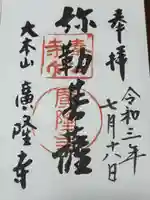 奉拝
令和三年
七月十八日
弥勒菩薩
大本山 廣隆寺